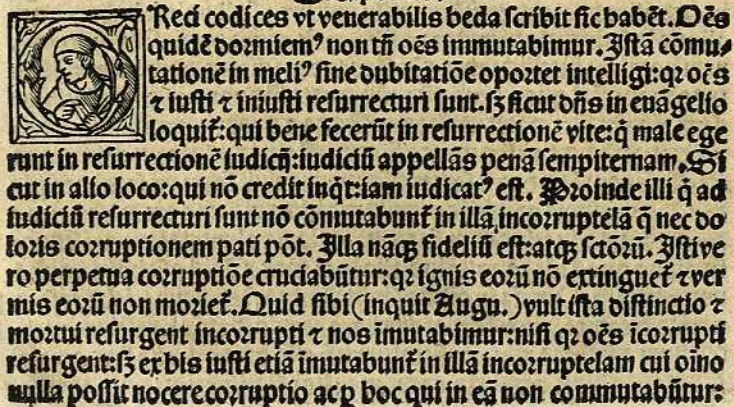 GReci codices vt venerabilis beda scribit sic habēt. Oēs
quidē dormiemꝰ non tñ oēs immutabimur. Istā cōmu⸗
tationē in meliꝰ sine dubitatiōe oportet intelligi: qꝛ oēs
⁊ iusti ⁊ iniusti resurrecturi sunt. sꝫ sicut dñs in euāgelio
loquit᷑: qui bene fecerūt in resurrectionē vite: q̄ male ege
runt in resurrectionē iudicij: iudiciū appellās penā sempiternam. Si
cut in alio loco: qui nō credit inq̇t: iam iudicatꝰ est. Proinde illi q̄ ad
iudiciū resurrecturi sunt nō cōmutabunt᷑ in illā incorruptelā q̄ nec do
loris corruptionem pati pōt. Illa nāqꝫ fideliū est: atqꝫ sctōꝛū. Istive
ro perpetua corruptiōe cruciabūtur: qꝛ ignis eorū nō extinguet᷑ ⁊ ver
mis eorū non moriet᷑. Quid sibi (inquit Augu.) vult ista distinctio ⁊
mortui resurgent incorrupti ⁊ nos īmutabimur: nisi qꝛ oēs īcorrupti
resurgent: sꝫ ex his iusti etiā īmutabunt᷑ in illā incorruptelam cui oīno
nulla possit nocere corruptio ac ꝑ hoc qui in eā non commutabūtur: